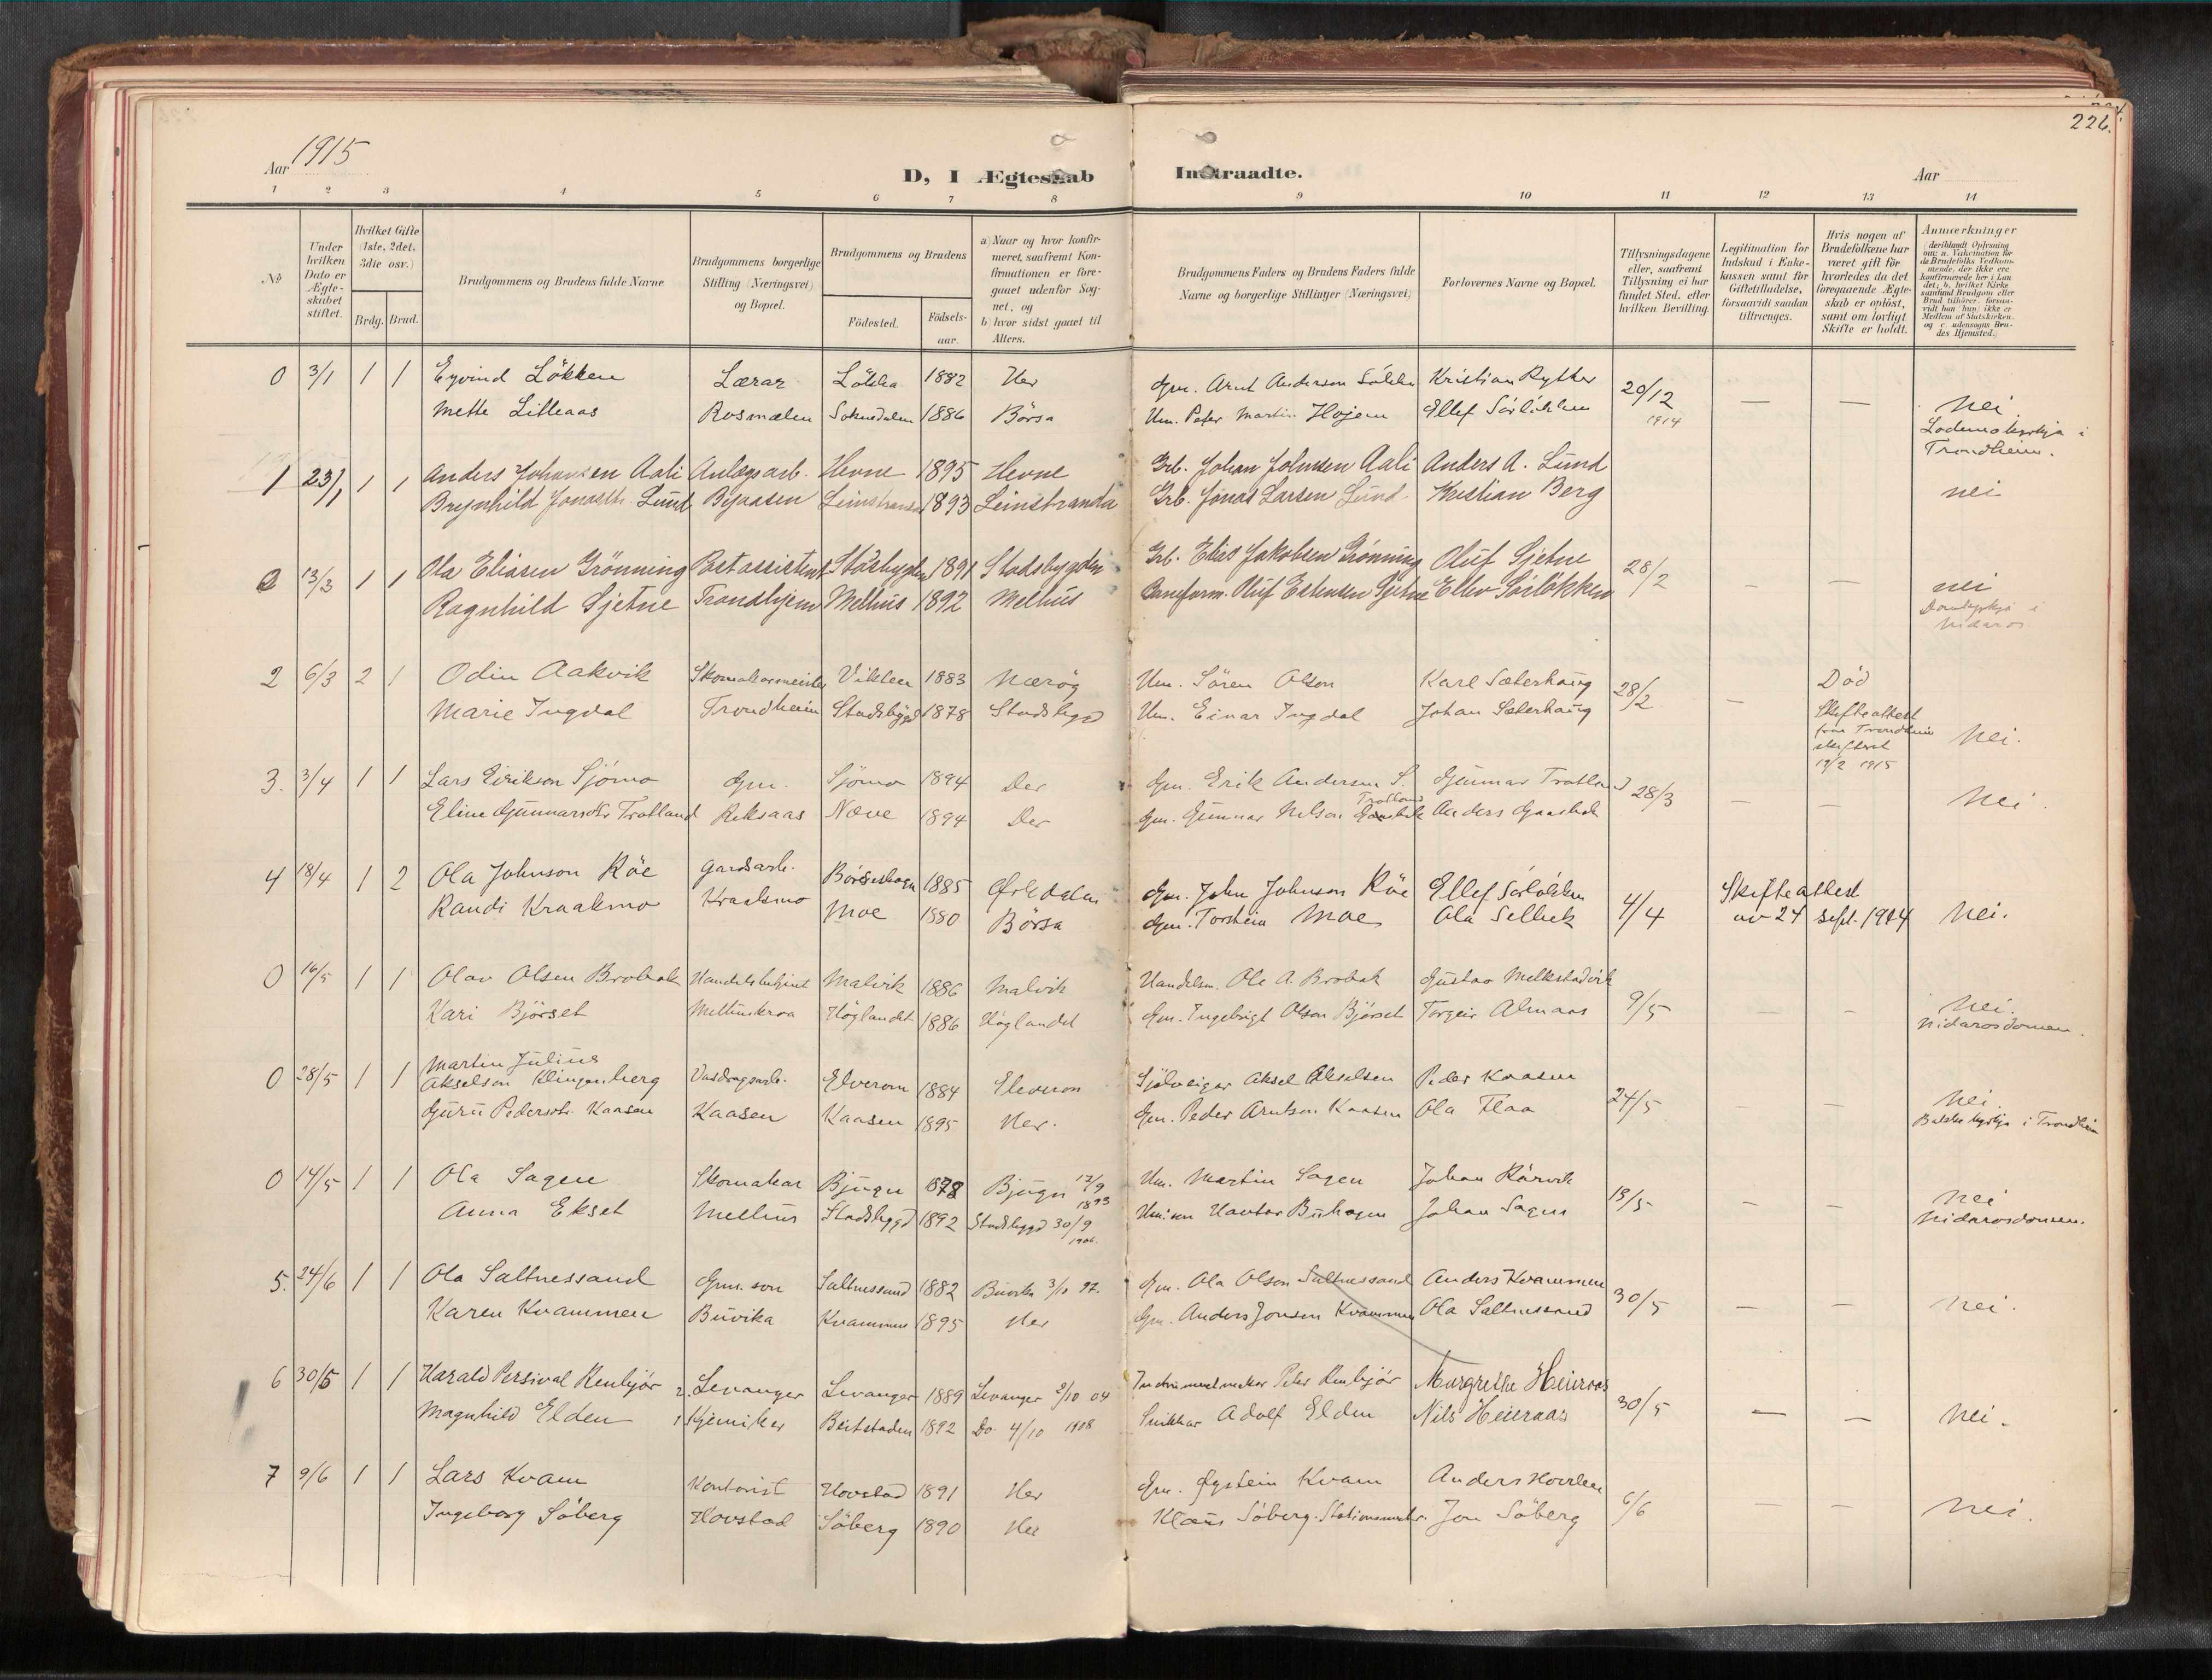 226.
Aar 1915
D, I Ægteskab Indtraadte.
Aar
1 2 3 4 5 6 7 8 9 10 11 12 13 14
No
Under hvilken Dato er Ægteskabet stiftet.
Hvilket Gifte (1ste, 2det, 3die osv.)
Brdg. Brud.
Brudgommens og Brudens fulde Navne
Brudgommens borgerlige Stilling (Næringsvei) og Bopæl.
Brudgommens og Brudens
Födested.
Födsels-aar.
a) Naar og hvor konfirmeret, saafremt Konfirmationen er foregaaet udenfor Sognet, og
b) hvor sidst gaaet til Alters.
Brudgommens Faders og Brudens Faders fulde Navne og borgerlige Stillinger (Næringsvei)
Forlovernes Navne og Bopæl.
Tillysningsdagene eller, saafremt Tillysning ei har fundet Sted, efter hvilken Bevilling.
Legitimation for Indskud i Enkekassen samt for Giftetilladelse, forsaavidt saadan tiltrænges.
Hvis nogen af Brudefolkene har været gift för hvorledes da det foregaaende Ægteskab er oplöst, samt om lovligt Skifte er holdt.
Anmærkninger
(deriblandt Oplysning om: a. Vakcination for de Brudefolks Vedkommende, der ikke ere konfirmerede her i Landet; b. hvilket Kirkesamfund Brudgom eller Brud tilhörer, forsaavidt han (hun) ikke er Medlem af Statskirken, og c. udensogns Brudes Hjemsted.)
0 3/1 1 1 Eyvind Lökken Lærar Lökka 1882 Her Gm. Arnt Anderson Kristian Rytter 20/12 — — nei.
Mette Litleaas Rosmælen Soknedalen 1886 Börsa Um. Peter Martin Hojem Ellef Sörlökken 1914
Lademokyrkja i
Trondheim.
1 23/1 1 1 Anders Johansen Aali Anlægsarb. Hevne 1895 Hevne Grb. Johan Johnsen Aali Anders A. Lund
Brynhild Jonasdtr. Lund Leinstranda 1893 Leinstranda Grb. Jonas Larsen Lund Kristian Berg nei
0 13/3 1 1 Ola Eliasen Grönning Postassistent Stadsbygden 1891 Stadsbygden Grb. Elias Jakobsen Grönning Oluf Sjetne 28/2 — — nei
Ragnhild Sjetne Trondhjem Melhus 1892 Melhus Baneform. Oluf Estensen Sjetne Ellev Sörlökken
Domkyrkja i
Nidaros
2 6/3 2 1 Odin Aakvik Skomakarmeister Vikten 1883 Nærög Um. Sören Olson Karl Sæterhaug 28/2 — Död
Marie Ingdal Trondheim Stadsbygd 1878 Stadsbygd Um. Einar Ingdal Johan Sæterhaug Skifteattest
fraa Trondheim
skifteret
19/2 1915 nei.
3. 3/4 1 1 Lars Eirikson Sjömo Gm. Sjömo 1894 Der Gm. Erik Anderson S. Gunnar Tratland 28/3 — — nei.
Eline Gunnarsdtr Tratland Reksaas Neve 1894 Der Gm. Gunnar Nilson Tratland Anders Gaasbak
4 18/4 1 2 Ola Johnson Röe Gardsarb. Börseskogn 1885 Ørkdalen Gm. John Johnson Röe Ellef Sörlökken 4/4 Skifteattest
Randi Kraakmo Kraakmo Moe 1880 Börsa Gm. Torstein Moe Ola Selbek av 24 sept. 1914 nei.
0 16/5 1 1 Olav Olsen Brobak Handelsbetjent Malvik 1886 Malvik Handelsm. Ole A. Brobak Gustav Melkstadvik 9/5 — — nei.
Kari Björset Melhuskroa Höglandet 1886 Höglandet Gm. Ingebrigt Olson Björset Torgeir Almaas Nidarosdomen.
0 28/5 1 1 Martin Julius
Akselson Klingenberg Vasdragsarb. Elverom 1884 Elverom Sjölveigar Aksel Akselsen Peder Kaasen 24/5 — — nei.
Guru Pedersdtr. Kaasen Kaasen Kaasen 1895 Her. Gm. Peder Arntson Kaasen Ola Flaa
Bakke kyrkja i Trondheim
0 14/5 1 1 Ola Sagen Skomakar Bjugn 1878 Bjugn 17/9 1893 Um. Martin Sagen Johan Rärvik 13/5 — — nei
Anna Ekset Melhus Stadsbygd 1892 Stadsbygd 30/9 1906. Johan Sagen Nidarosdomen.
5. 24/6 1 1 Ola Saltnessand Gm. son Saltnessand 1882 Buvika 3/10 97. Gm. Ola Olson Saltnessand Anders Kvammen 30/5 — — nei.
Karen Kvammen Buvika Kvammen 1895 Her Gm. Anders Jonsen Kvammen Ola Saltnessand
6 30/5 1 1 Harald Persival Renbjör 2. Levanger Levanger 1889 Levanger 2/10 04 Instrumentmakar Peter Renbjör Margrethe Heieraas 30/5 — — nei.
Magnhild Elden 1 Kjemiker Beitstaden 1892 Do 4/10 1908 Snikkar Adolf Elden Nils Heieraas
7 9/6 1 1 Lars Kvam Kontorist Hovstad 1891 Her Gm. Øystein Kvam Anders Hovden 6/6 — — nei.
Ingeborg Söberg Hovstad Söberg 1890 Her Klaus Söberg. Stationsmester. Jon Söberg